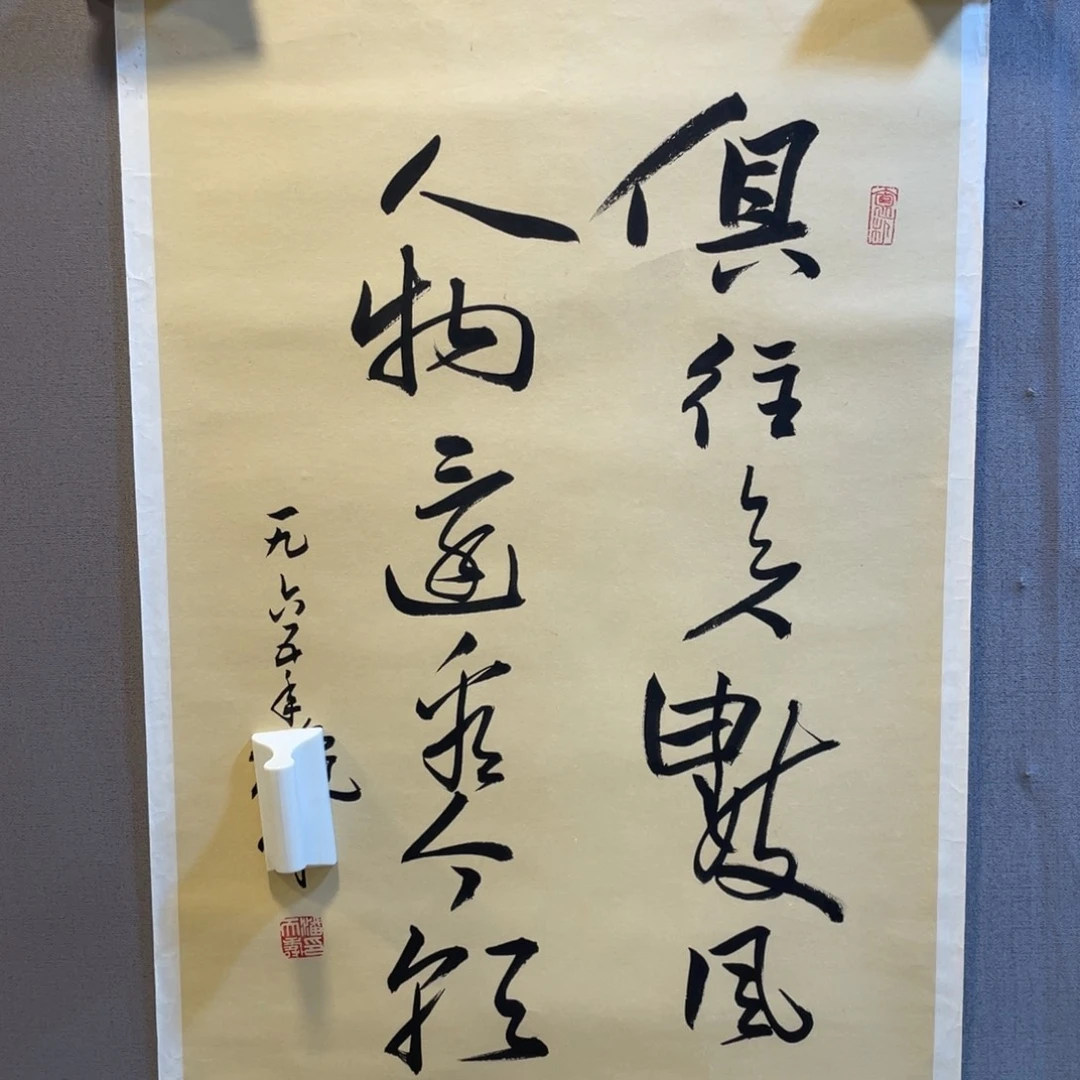 俱往矣數風
人物還看今朝
一九六五年
潘印天壽